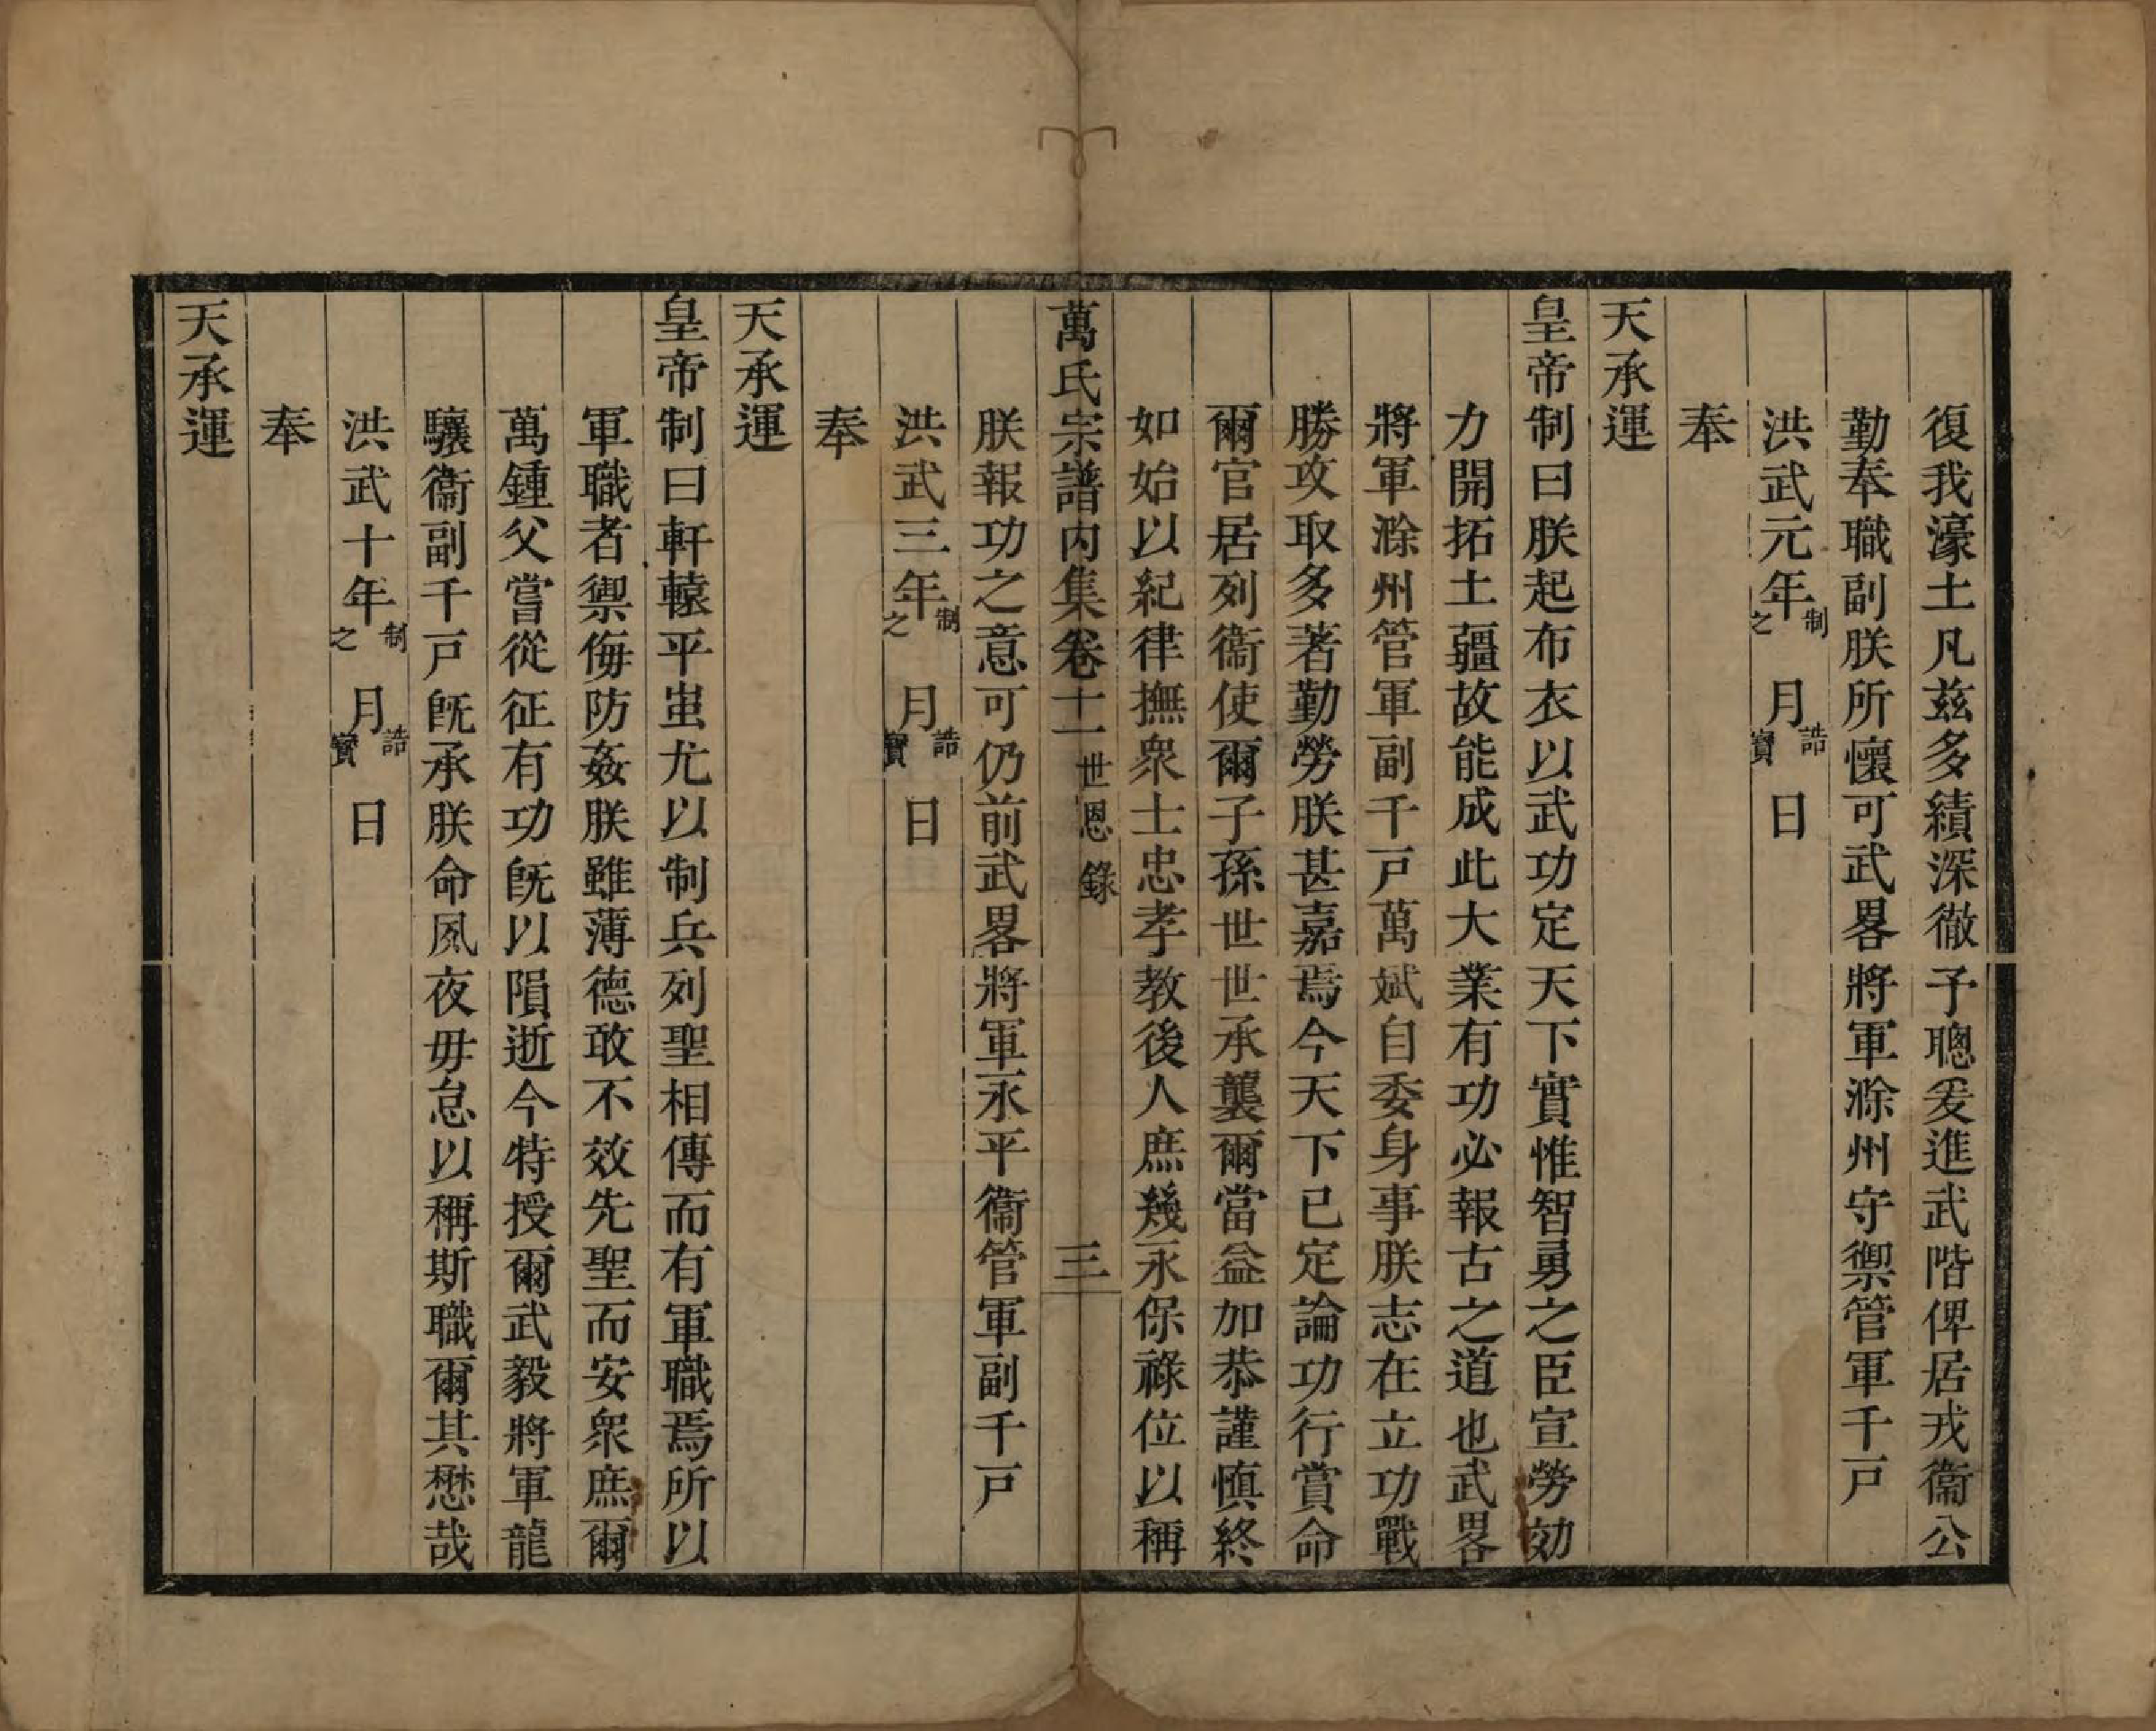 復我濠土凡茲多績深徹予聰爰進武階俾居戎衞公
勤奉職副朕所懷可武畧將軍滁州守禦管軍千戸
洪武元年制之月誥寶日
奉
天承運
皇帝制曰朕起布衣以武功定天下實惟智勇之臣宣勞効
力開拓土疆故能成此大業有功必報古之道也武畧
將軍滁州管軍副千戸萬斌自委身事朕志在立功戰
勝攻取多著勤勞朕甚嘉焉今天下已定論功行賞命
爾官居列衞使爾子孫世世承襲爾當益加恭謹慎終
如始以紀律撫衆士忠孝教後人庶幾永保祿位以稱
萬氏宗譜內集卷十一 世恩錄 三
朕報功之意可仍前武畧將軍永平衞管軍副千戸
洪武三年制之月誥寶日
奉
天承運
皇帝制曰軒轅平蚩尤以制兵列聖相傳而有軍職焉所以
軍職者禦侮防姦朕雖薄德敢不效先聖而安衆庶爾
萬鍾父嘗從征有功旣以隕逝今特授爾武毅將軍龍
驤衞副千戸旣承朕命夙夜毋怠以稱斯職爾其懋哉
洪武十年制之月誥寶日
奉
天承運